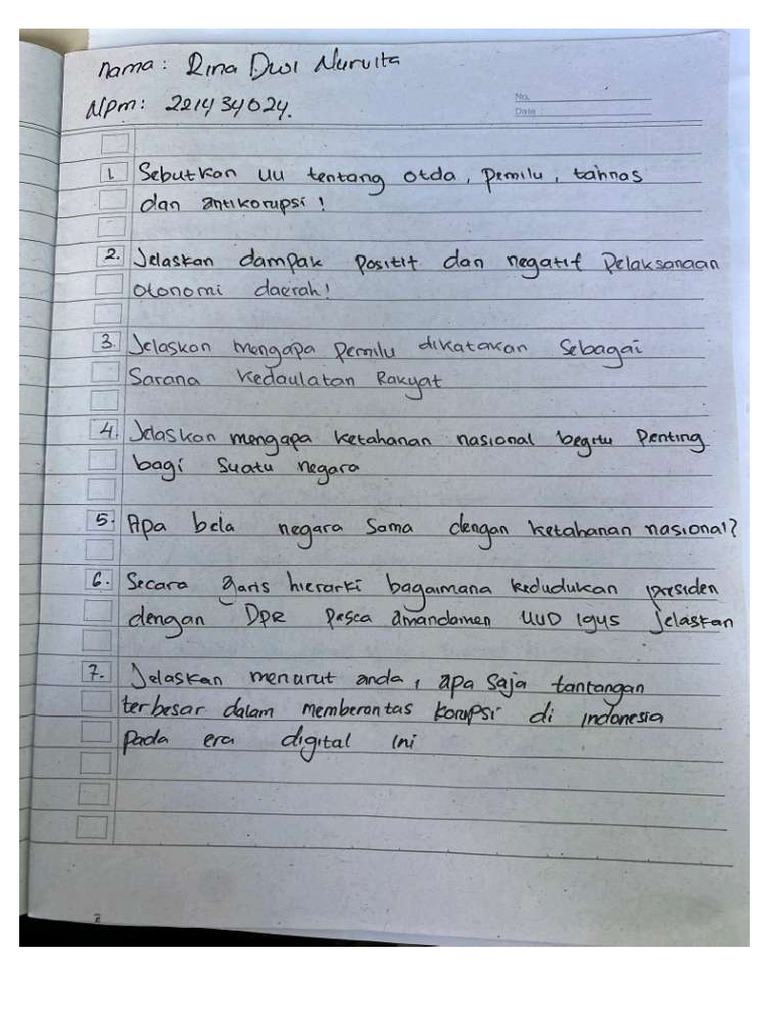 Nama : Rina Dwi Nurvita
Npm : 221434024.
No.
Date :
1. Sebutkan UU tentang otda, pemilu, tahnas
dan antikorupsi!
2. Jelaskan dampak positif dan negatif Pelaksanaan
otonomi daerah!
3. Jelaskan mengapa Pemilu dikatakan Sebagai
Sarana Kedaulatan Rakyat
4. Jelaskan mengapa ketahanan nasional begitu Penting
bagi Suatu negara
5. Apa bela negara Sama dengan ketahanan nasional?
6. Secara garis hierarki bagaimana kedudukan presiden
dengan DPR Pasca amandamen UUD 1945 Jelaskan
7. Jelaskan menurut anda, apa saja tantangan
terbesar dalam memberantas korupsi di indonesia
Pada era digital ini